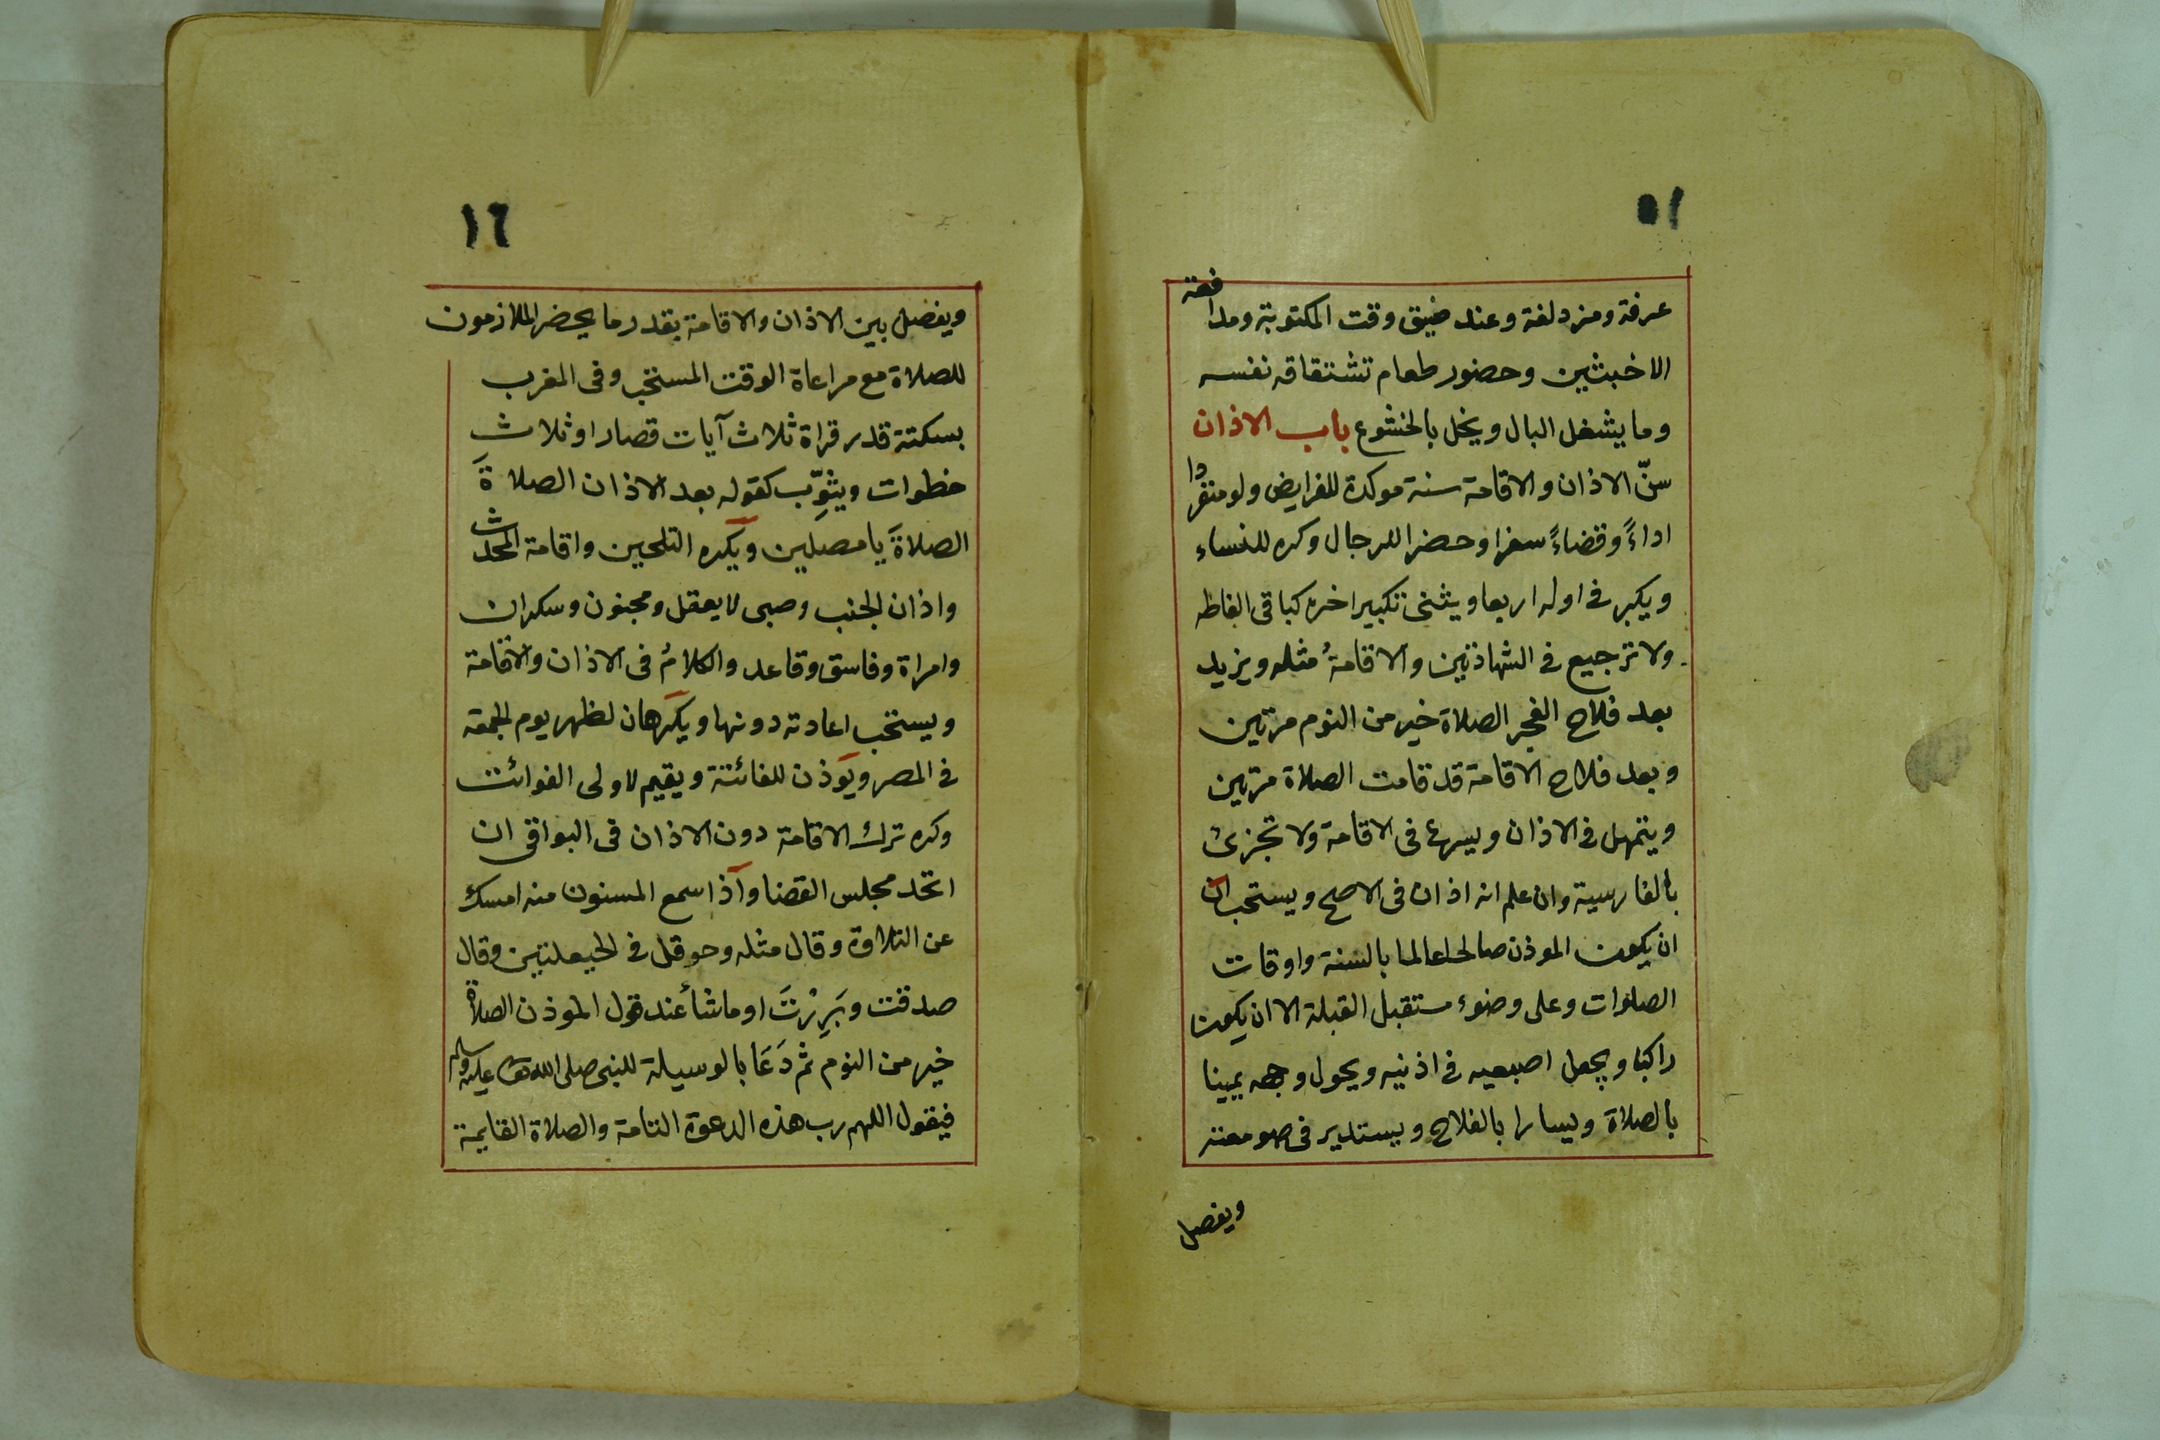 ١٥
عرفة ومزدلفة وعند ضيق وقت المكتوبة ومدافعة
الاخبثين وحضور طعام تشتقاقه نفسه
وما يشغل البال ويخل بالخشوع باب الاذان
سنّ الاذان والاقامة سنة موكدة للفرايض ولو منفردا
اداءً وقضاءً سفرا وحضرا للرجال وكره للنساء
ويكبر في اوله اربعا ويثنى تكبير اخره كباقى الفاظه
ولا ترجيع في الشهادتين والاقامةُ مثله ويزيد
بعد فلاح الفجر الصلاة خير من النوم مرتين
وبعد فلاح الاقامة قد قامت الصلاة مرتين
ويتمهل في الاذان ويسرع فى الاقامة ولا تجزئ
بالفارسية وان علم انه اذان فى الاصح ويستحب ان
ان يكون الموذن صالحا عالما بالسنة واوقات
الصلوات وعلى وضوء مستقبل القبلة الا ان يكون
راكبا ويجعل اصبعيه في اذنيه ويحول وجهه يمينا
بالصلاة ويسارا بالفلاح ويستدير فى صومعته
ويفصل
١٦
ويفصل بين الاذان والاقامة بقدر ما يحضر الملازمون
للصلاة مع مراعاة الوقت المستحب وفى المغرب
بسكتة قدر قراة ثلاث آيات قصار او ثلاث
خطوات ويثوِّب كقوله بعد الاذان الصلاةَ
الصلاةَ يا مصلين ويكره التلحين واقامة المحدث
واذان الجنب وصبى لا يعقل ومجنون وسكران
وامراة وفاسق وقاعد والكلامُ فى الاذان والاقامة
ويستحب اعادته دونها ويكرهان لظهر يوم الجمعة
في المصر ويوذن للفائتة ويقيم لاولى الفوائت
وكره ترك الاقامة دون الاذان فى البواقى ان
اتحد مجلس القضا واذا سمع المسنون منه امسك
عن التلاوة وقال مثله وحوقل في الحيعلتين وقال
صدقت وبَرِرْتَ او ما شأ عند قول الموذن الصلاة
خير من النوم ثم دَعَا بالوسيلة للنبى صلى الله تعالى عليه وسلم
فيقول اللهم رب هذه الدعوة التامة والصلاة القايمة